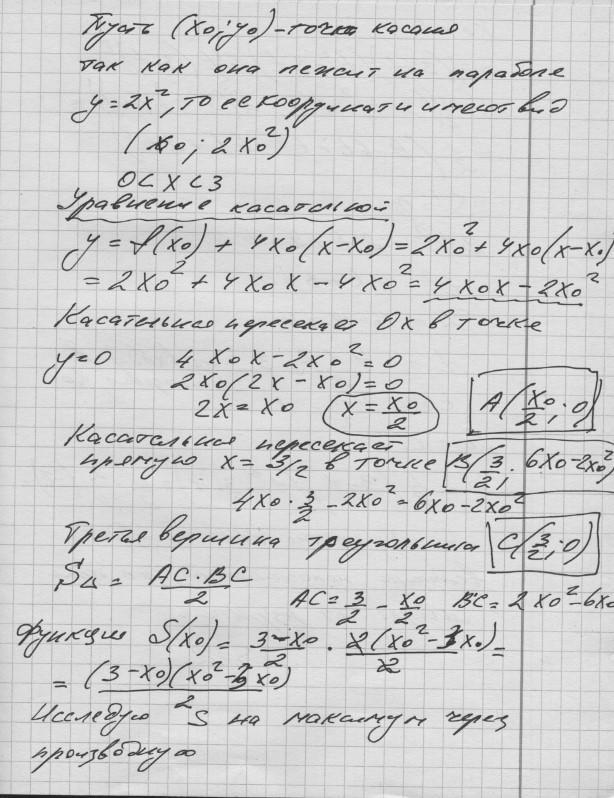 Пусть (x₀; y₀) – точка касания
так как она лежит на параболе
y = 2x², то ее координаты имеют вид
(x₀; 2x₀²)
0 < x < 3
Уравнение касательной
y = f(x₀) + 4x₀(x–x₀) = 2x₀² + 4x₀(x–x₀)
= 2x₀² + 4x₀x – 4x₀² = 4x₀x – 2x₀²
Касательная пересекает Ox в точке
y=0 4x₀x – 2x₀² = 0
2x₀(2x – x₀) = 0
2x = x₀ x = x₀/2 A(x₀/2; 0)
Касательная пересекает
прямую x = 3/2 в точке B(3/2; 6x₀–2x₀²)
4x₀ · 3/2 – 2x₀² = 6x₀ – 2x₀²
Третья вершина треугольника C(3/2; 0)
S△ = AC·BC/2 AC = 3/2 – x₀/2 BC = 2x₀² – 6x₀
Функция S(x₀) = (3–x₀)/2 · 2(x₀² – 3x₀)/2 =
= (3–x₀)(x₀² – 3x₀)/2
Исследую S на максимум через
производную